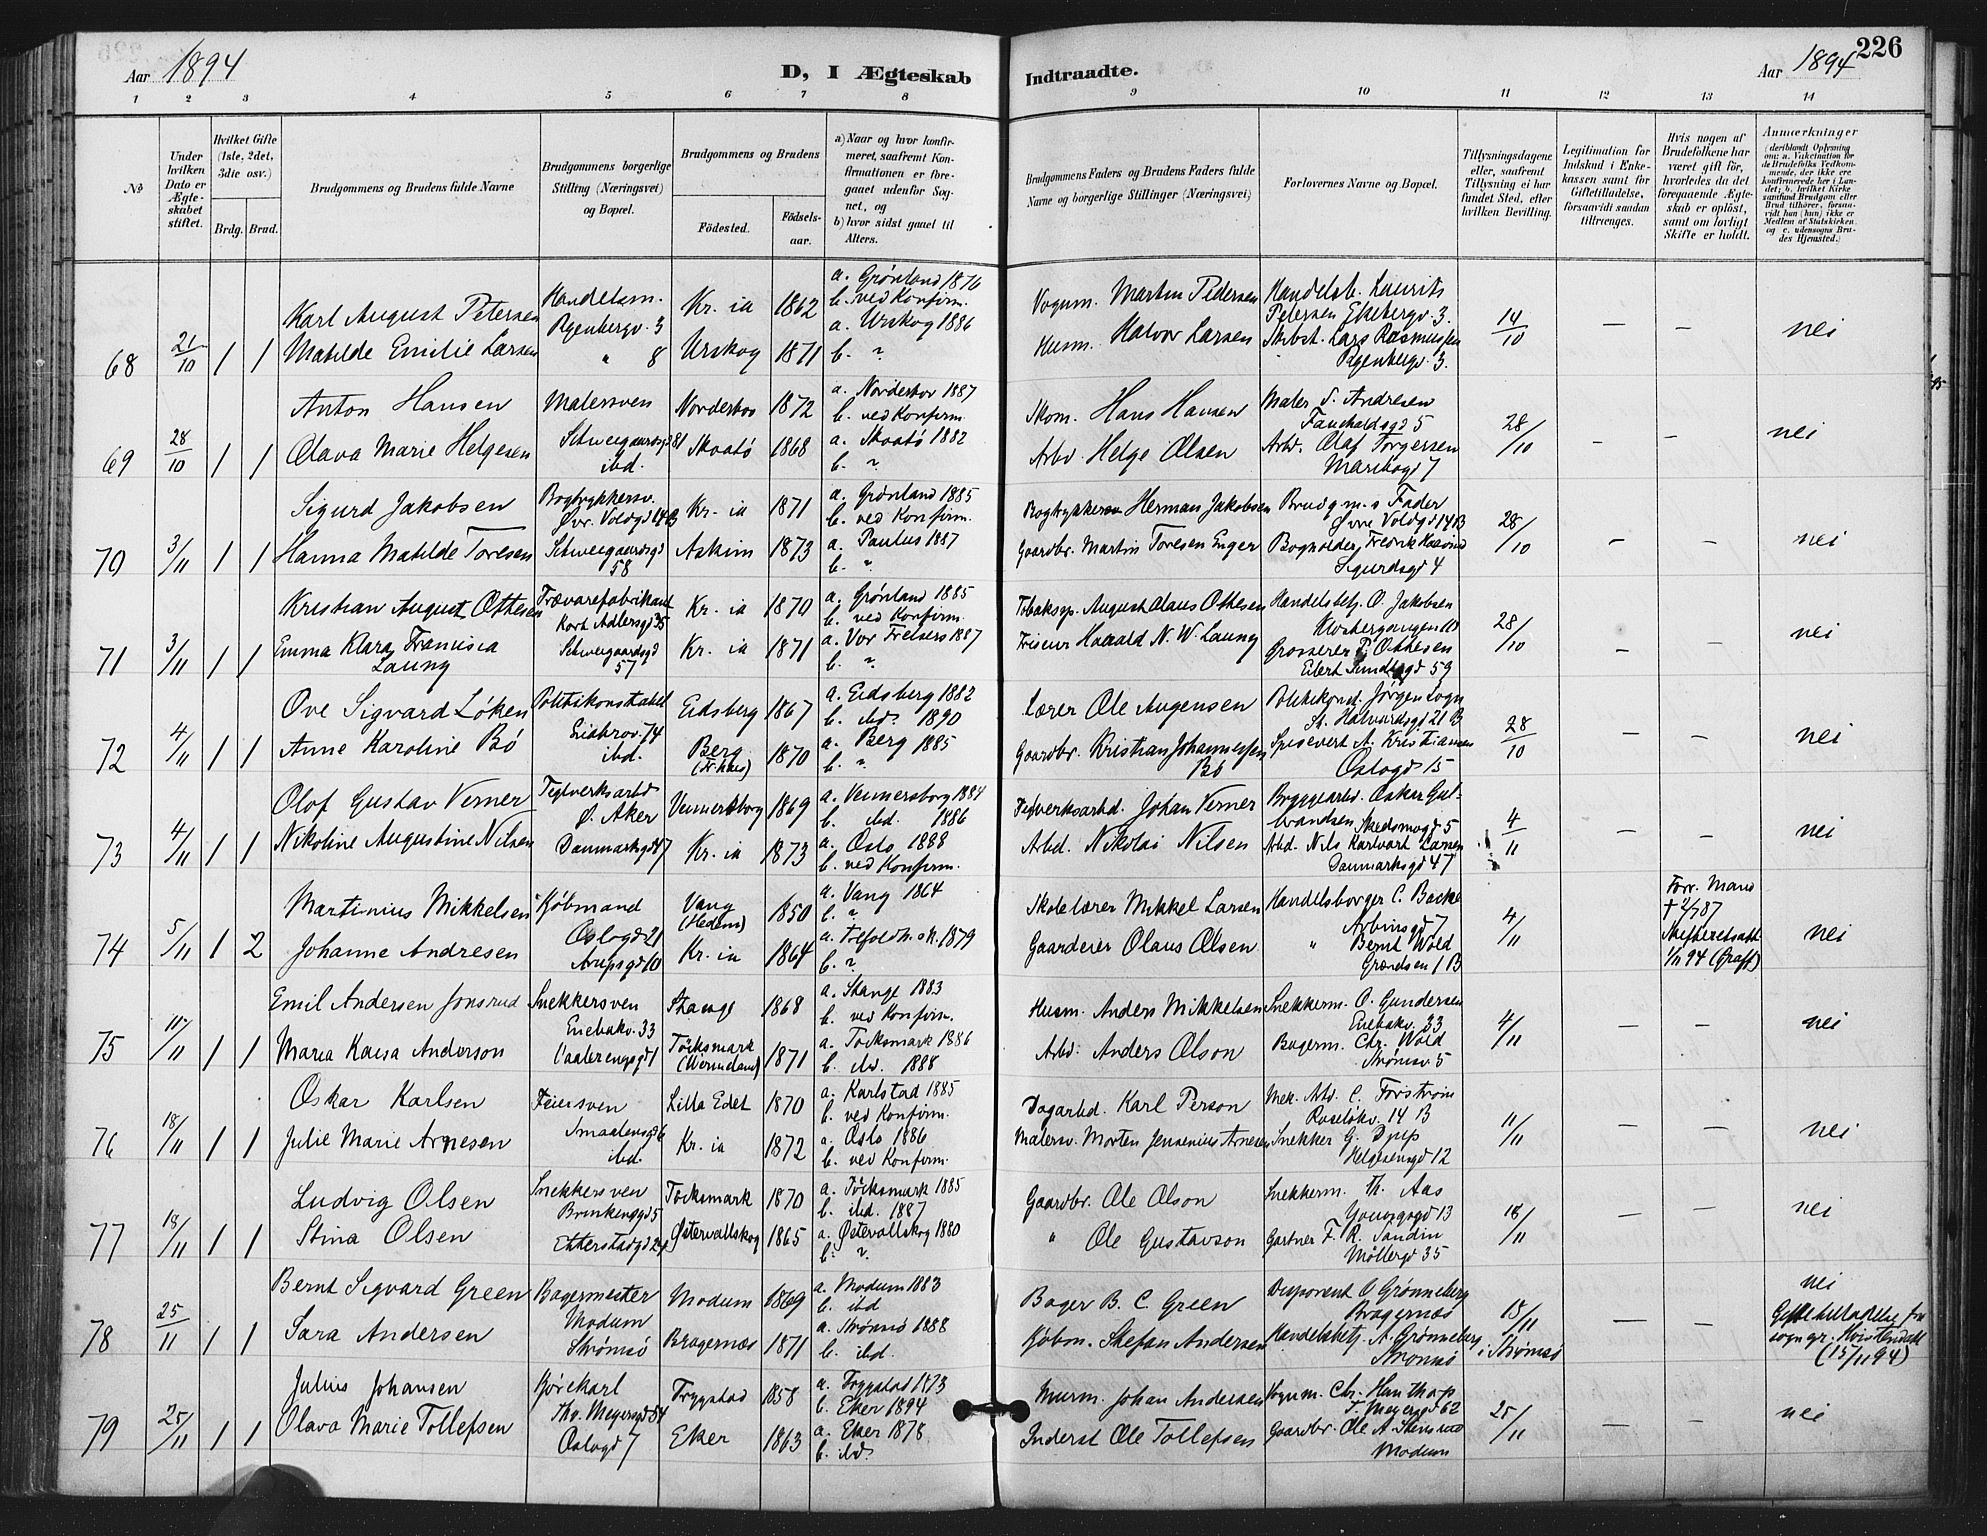 226
Aar 1894
D, I Ægteskab
Indtraadte.
Aar 1894
1 2 3 4 5 6 7 8 9 10 11 12 13 14
№
Under hvilken Dato er Ægteskabet stiftet.
Hvilket Gifte (1ste, 2det, 3die osv.)
Brdg. Brud.
Brudgommens og Brudens fulde Navne
Brudgommens borgerlige Stilling (Næringsvei) og Bopæl.
Brudgommens og Brudens
Fødested.
Fødselsaar.
a) Naar og hvor konfirmeret, saafremt Konfirmationen er foregaaet udenfor Sognet, og
b) hvor sidst gaaet til Alters.
Brudgommens Faders og Brudens Faders fulde Navne og borgerlige Stillinger (Næringsvei)
Forlovernes Navne og Bopæl.
Tillysningsdagene eller, saafremt Tillysning ei har fundet Sted, efter hvilken Bevilling.
Legitimation for Indskud i Enkekassen samt for Giftetilladelse, forsaavidt saadan tiltrænges.
Hvis nogen af Brudefolkene har været gift før, hvorledes da det foregaaende Ægteskab er opløst, samt om lovligt Skifte er holdt.
Anmærkninger
(deriblandt Oplysning om: a. Vakcination for de Brudefolks Vedkommende, der ikke ere konfirmerede her i Landet; b. hvilket Kirkesamfund Brudgom eller Brud tilhører, forsaavidt han (hun) ikke er Medlem af Statskirken. og c. udensogns Brudes Hjemsted.)
68 21/10 1 1
Karl August Petersen Handelsm. Kr. ia 1862 a. Grønland 1876 b. ved Konfirm. Vognm. Martin Pedersen Handelsb. Laurits Petersen Ekebergv. 3. 14/10 — — nei
Matilde Emilie Larsen " 8 Urskog 1871 a. Urskog 1886 b. ? Husm. Halvor Larsen Lars Rasmussen
69 28/10 1 1
Anton Hansen Malersven Norderhov 1872 a. Norderhov 1887 b. ved Konfirm. Skom. Hans Hansen Maler S. Andresen 5 28/10 — — nei
Olava Marie Helgesen Schweigaardsgd 81 ibd. Skaatø 1868 a. Skaatø 1882 b. ? Arbd. Helge Olsen Arbd. Olaf Torgersen Maribogd 7
70 3/11 1 1
Sigurd Jakobsen Bogtrykkersv. Øvr. Voldgd 14B Kr. ia 1871 a. Grønland 1885 b. ved Konfirm. Herman Jakobsen Brudgm.s Fader Øvre Voldgd 14B 28/10 — — nei
Hanna Matilde Toresen Schweigaardsgd 58 Askim 1873 a. Paulus 1887 b. " Gaardbr. Martin Toresen Enger Bogholder Fredrik Sigurdsgd 4
71 3/11 1 1
Kristian August Ottesen Trævarefabrikant Kort Adlersgd 35 Kr. ia 1870 a. Grønland 1885 b. ved Konfirm. August Claus Ottesen Handelsbetj. O. Jakobsen 28/10 — — nei
Emma Klara Francisca Laung Schweigaardsgd 57 Kr. ia 1871 a. Vor Frelsers 1887 b. ? Friseur Harald N. W. Laung Grosserer F. Ottesen Eilert Sundtsgd 59
72 4/11 1 1
Ove Sigvard Løken Politikonstabel Eidsberg 1867 a. Eidsberg 1882 b. ibd. 1890 Lærer Ole Augensen Politikonst. Jørgen Sogn St. Halvardsgd 21 B 28/10 — — nei
Anne Karoline Bø ibd. Berg (Fr.hles) 1870 a. Berg 1885 b. ? Gaardbr. Kristian Johannessen Bø Spisevert A. Kristiansen Oslogd 15
73 4/11 1 1
Olof Gustav Verner Teglverksarbd Ø. Aker Vennersborg 1869 a. Vennersborg 1884 b. ibd. 1886 Teglverksarbd. Johan Verner Byggearbd. Oskar Gulbrandsen Skedsmogd 5 4/11 — — nei
Nikoline Augustine Nilsen Danmarksgd 47 Kr. ia 1873 a. Oslo 1888 b. ved Konfirm. Arbd. Nikolai Nilsen Arbd. Nils Karlvart Larsen Danmarksgd 47
74 5/11 1 2
Martinius Mikkelsen Kjøbmand Oslogd 21 Vang (Hedem) 1850 a. Vang 1864 b. ? Skolelærer Mikkel Larsen Handelsborger C. Backe Arbinsgd 7 4/11 Forr. Mand † 2/7 87 Skifteretsatt 1/11 94 (Graff) nei
Johanne Andresen Arupsgd 10 Kr. ia 1864 1879 b. ? Gaardeier Olaus Olsen " Bernt Wold Grændsen 1 B
75 11/11 1 1
Emil Andersen Jonsrud Snekkersven Enebakv. 33 Stange 1868 a. Stange 1883 b. ved Konfirm. Husm. Anders Mikkelsen Snekkerm. O. Gundersen Enebakv. 33 4/11 — — nei
Maria Kaisa Anderson Vaalerengsgd 1 Töcksmark (Wermeland) 1871 a. Töcksmark 1886 b. ibd. 1888 Arbd. Anders Olson Bagerm. Chr. Wold Strømsv 5
76 18/11 1 1
Oskar Karlsen Feiersven Smaalensgd 6 Lilla Edet 1870 a. Karlstad 1885 b. ved Konfirm. Dagarbd. Karl Person Mek. Arbd. C. Forstrøm 14 B 11/11 — — nei
Julie Marie Arnesen ibd. Kr. ia 1872 a. Oslo 1886 b. ved Konfirm. Malersv. Morten Jensenius Arnesen Snekker G. Djup Helgesensgd 12
77 18/11 1 1
Ludvig Olsen Snekkersven Brinkengd 5 Töcksmark 1870 a. Töcksmark 1885 b. ibd. 1887 Gaardbr. Ole Olson Snekkerm. Th. Aas 13 18/11 — — nei
Stina Olsen Etterstadgd Østervallskog 1865 a. Østervallskog 1880 b. ? " Ole Gustavson Gartner F. R. Sandin Møllergd 35
78 25/11 1 1
Bernt Sigvard Green Bagermester Modum Modum 1869 a. Modum 1883 b. ibd Bager B. C. Green Disponent O Grønneberg Bragernæs 18/11 i Strømsø — — nei
Sara Andersen Strømsø Bragernæs 1871 a. Strømsø 1888 b. ibd. Kjøbm. Stefan Andersen Handelsbetj. A. Grønneberg Strømsø Giftetilladelse fra sogn.pr. (15/11 94)
79 25/11 1 1
Julius Johansen Kjørekarl Th. Meyersgd 54 Trygstad 1858 a. Trygstad 1873 b. Eker 1894 Murm. Johan Andersen Vognm. Chr. T. Meyersgd 62 25/11 — — nei
Olava Marie Tollefsen Oslogd 7 Eker 1863 a. Eker 1878 b. ibd. Inderst Ole Tollefsen Gaardbr. Ole A. Modum